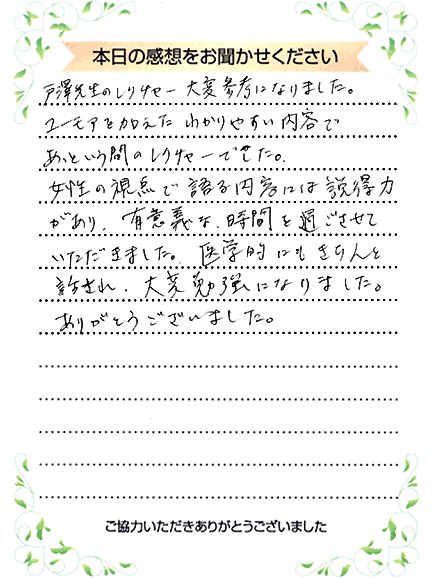 本日の感想をお聞かせください
戸澤先生のレクチャー 大変参考になりました。
ユーモアを加えた わかりやすい内容で
あっという間のレクチャーでした。
女性の視点で語る内容には説得力
があり、有意義な、時間を過ごさせて
いただきました。医学的にもきちんと
話され、大変勉強になりました。
ありがとうございました。
ご協力いただきありがとうございました